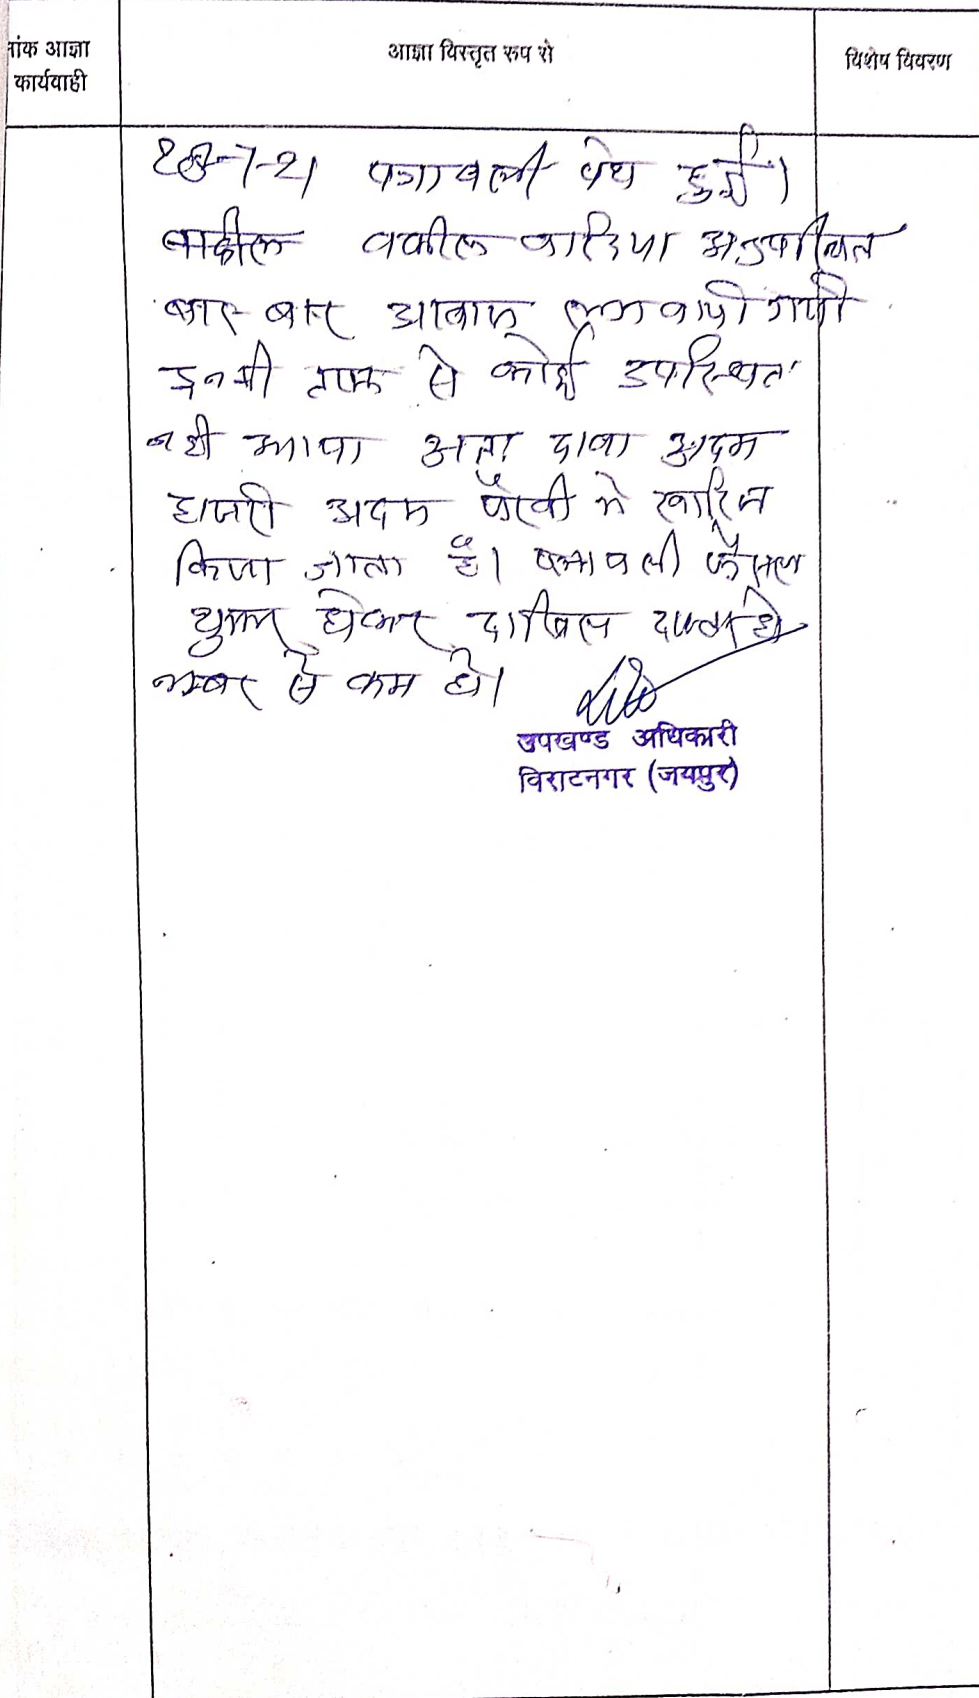 नांक आज्ञा
कार्यवाही
आज्ञा विस्तृत रूप से
विशेष विवरण
28-7-21 पत्रावली पेश हुई।
वकील वादिया अनुपस्थित
बार बार आवाज लगवायी गयी
इनकी तरफ से कोई उपस्थित
नही आया अतः दावा अदम
हाजरी अदम पैरवी मे खारिज
किया जाता है। पत्रावली फैसल
शुमार होकर दाखिल दफ्तर हो
नम्बर से कम हो।
उपखण्ड अधिकारी
विराटनगर (जयपुर)